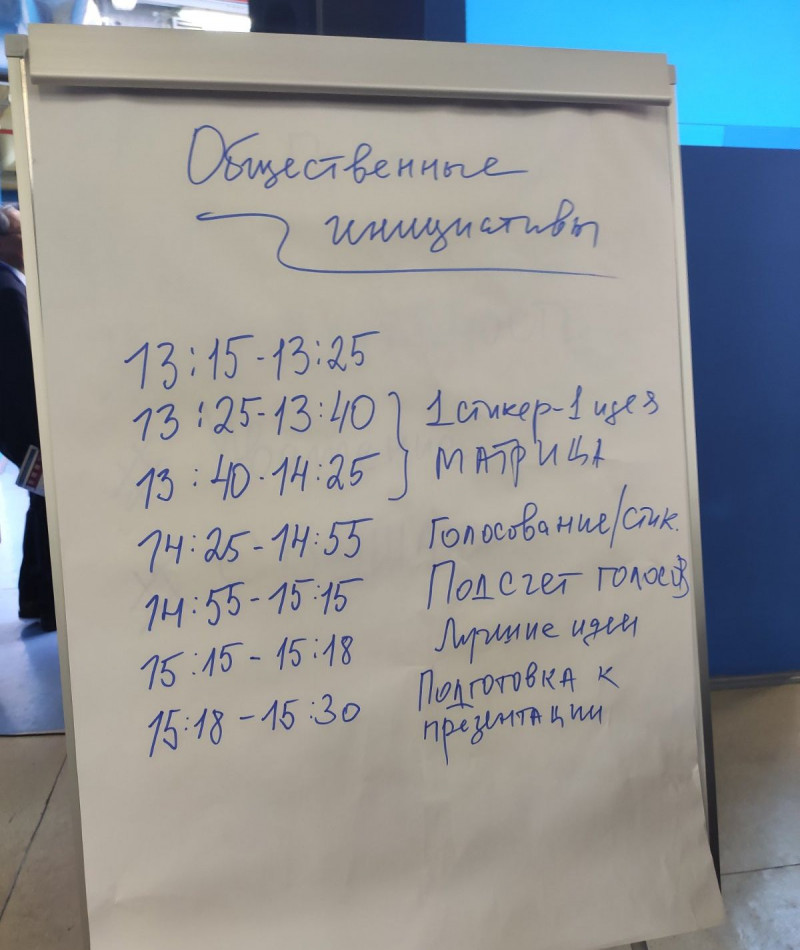 Общественные
инициативы
13:15-13:25
13:25-13:40 } 1 стикер-1 идея
13:40-14:25 } МАТРИЦА
14:25-14:55 Голосование/стик.
14:55-15:15 Подсчет голосов
15:15-15:18 Лучшие идеи
15:18-15:30 Подготовка к
презентации